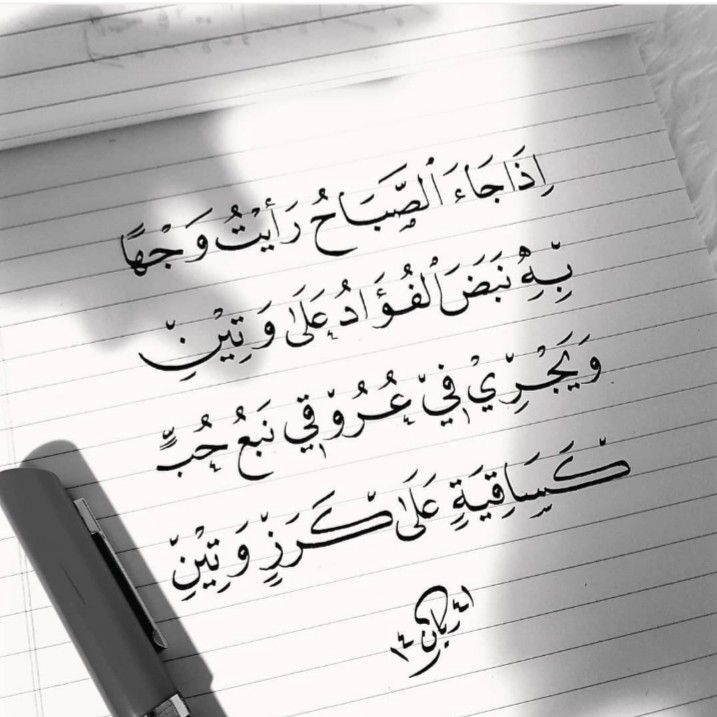 اِذَا جَاءَ ٱلصَّبَاحُ رَأَيْتُ وَجْهًا
بِهِ نَبَضَ ٱلفُؤَادُ عَلَىٰ وَتِيْنِ
وَيَجْرِيْ فِيْ عُرُوْقِي نَبَعُ حُبٍّ
كَسَاقِيَةٍ عَلَىٰ كَرَزٍ وَتِيْنِ